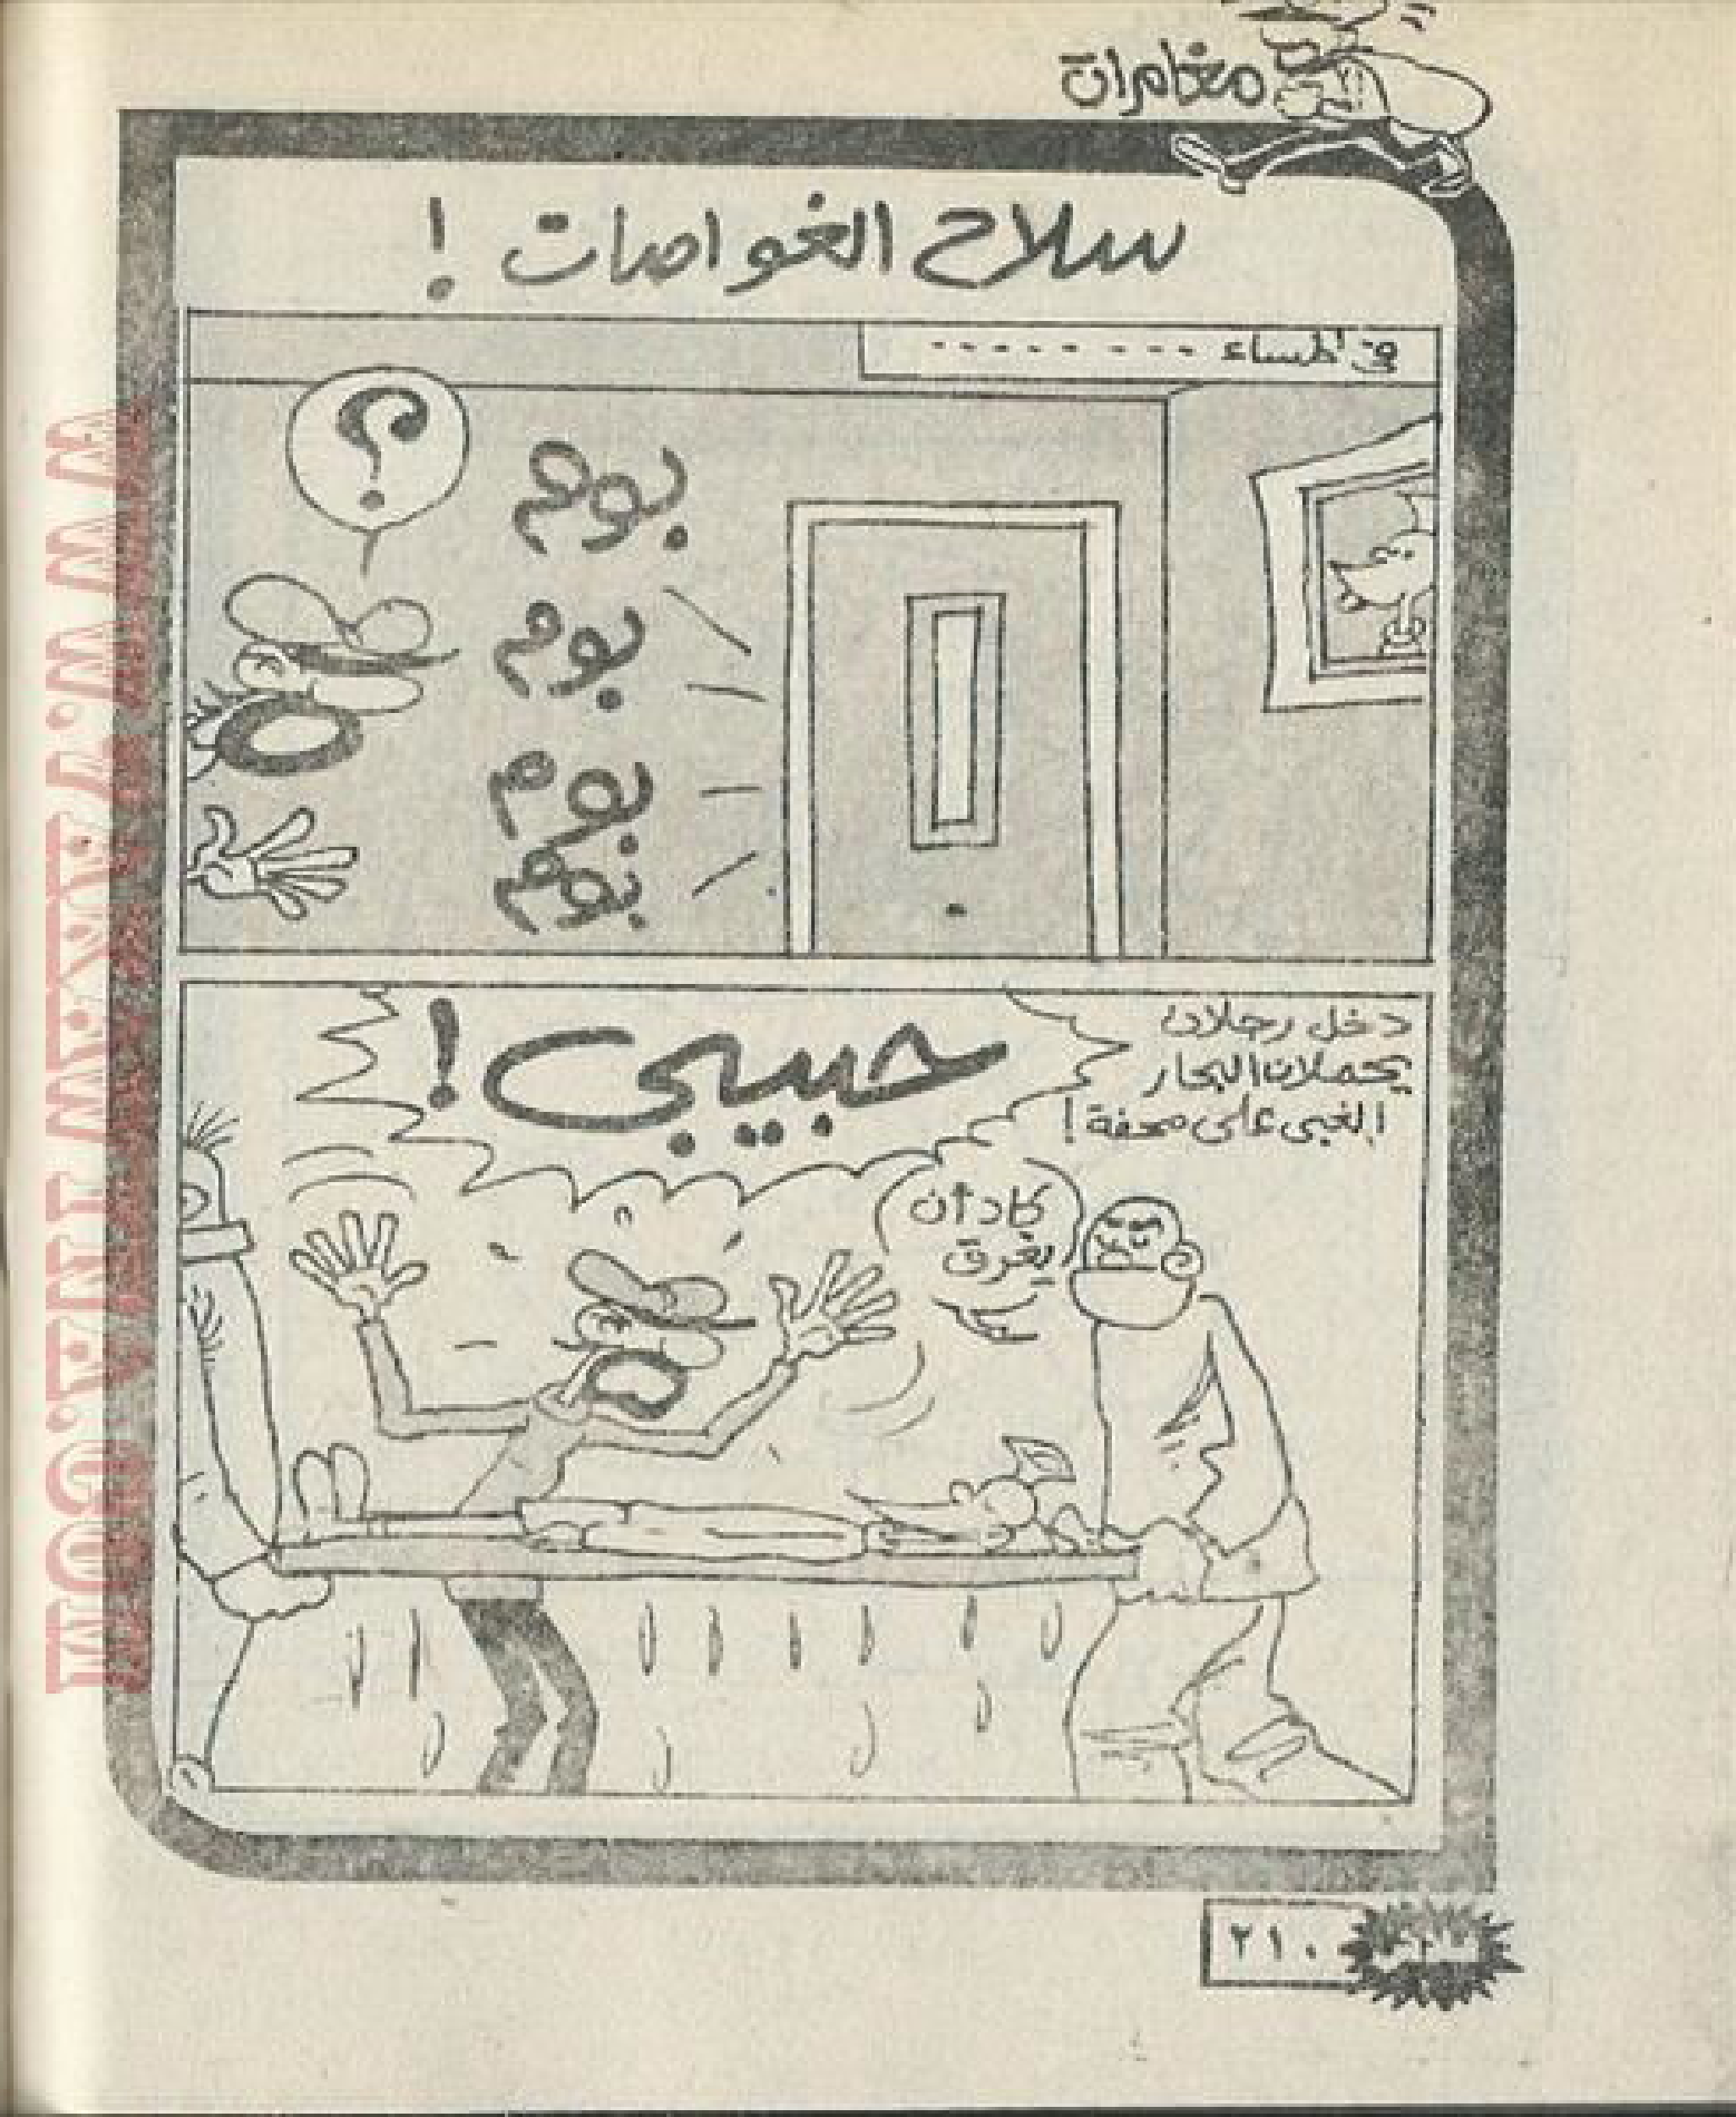 مغامرات
سلاح الغواصات !
في المساء - - - - - - - -
؟
بوم
بوم
بوم
بوم
دخل رجلان
يحملان البحار
الغبى على محفة !
حبيبى !
كاد أن
يغرق
٢١٠
WWW.ARABCOMICS.NET